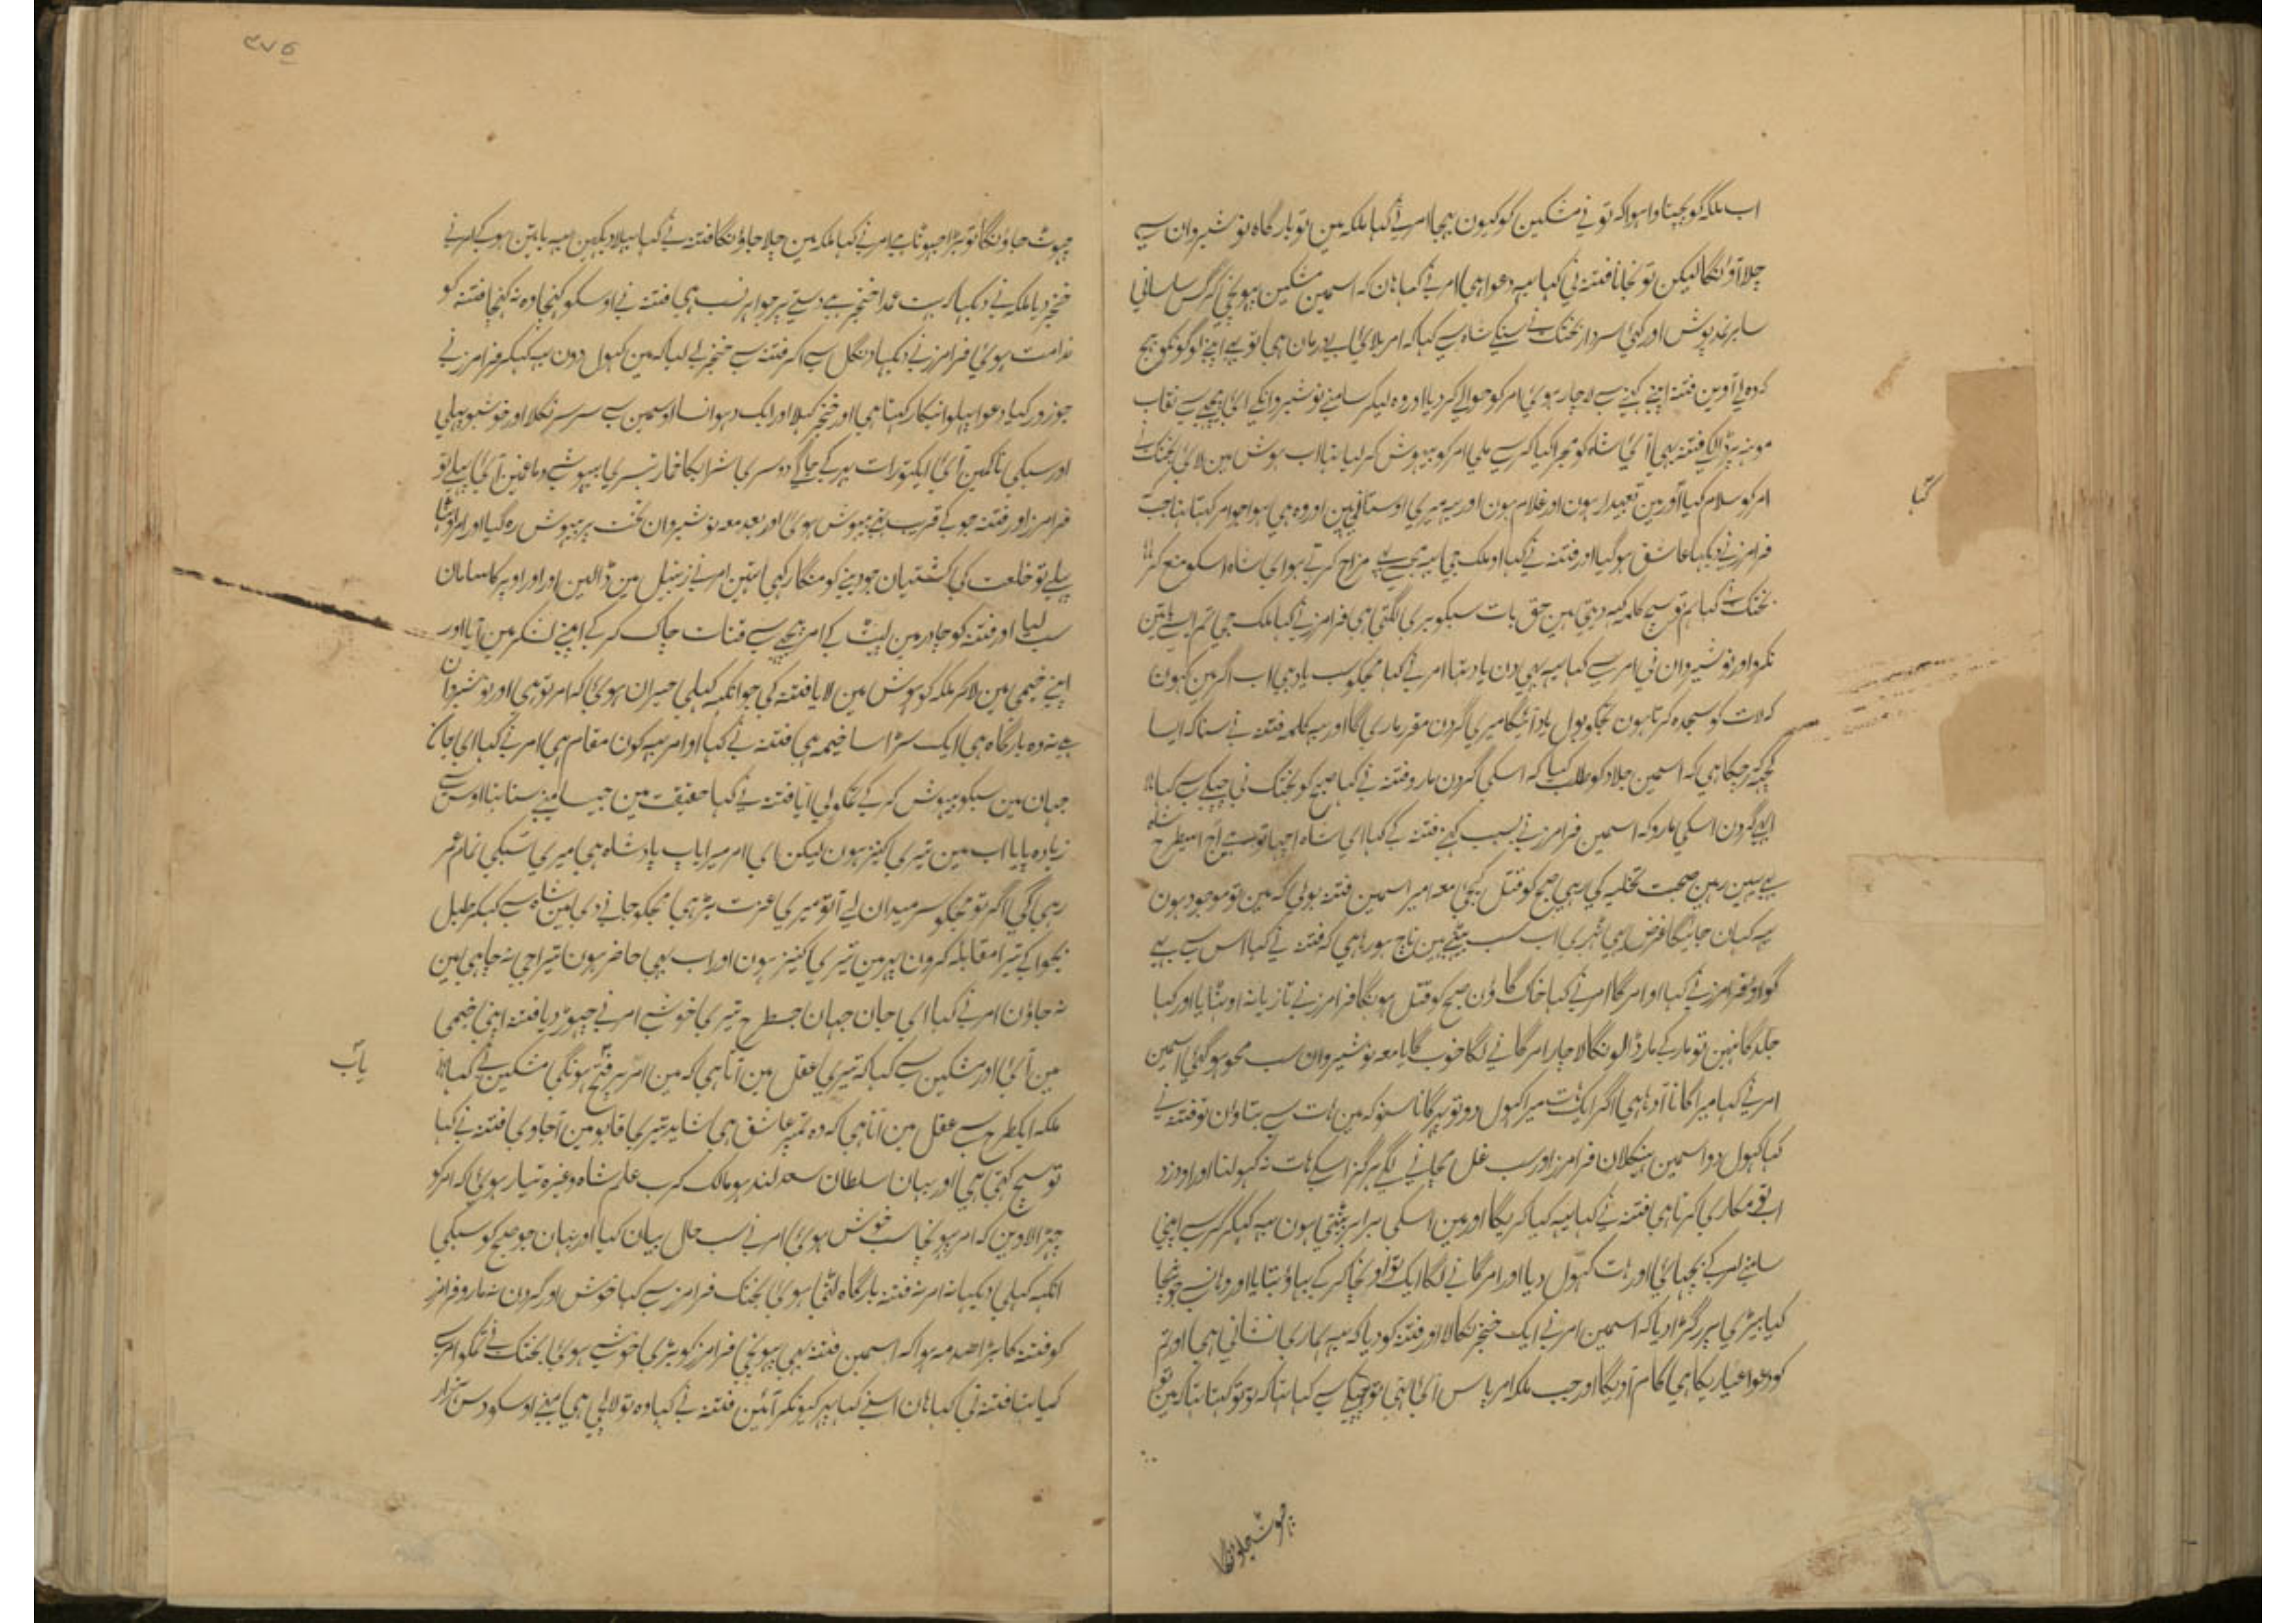 اب ملکہ کو پچتاوا ہوا کہ تو نی مشکین کو کیون بہیجا امر نی کہا ملکہ مین تو بارگاہ نوشیروان سی
چلا آؤنگا لیکن تو نجانا فتنہ نی کہا یہہ دعوا ہی امر نی کہا ہان کہ اسمین مشکین پہونچی
سابر نمد پوش اور کہی سردار بختک نی شاہ سی کہا کہ امر بلائی بیدرمان ہی تو بہی اپنی لوگونکو بہیج
کہ وہ لی آوین فتنہ اپنی کہنی سی لاچار ہوئی امر کو حوالی کر دیا اور وہ لیکر سامنی نوشیروانکی آئی پیچہی سی نقاب
مونہہ پر ڈالکی فتنہ بہی آئی شاہ کو مجرا کیا کرسی ملی امر کو بیہوش کر لیا تہا اب ہوش مین لائی بختک نی
امر کو سلام کیا اور مین تعبیدار ہون اور غلام ہون اور یہہ میری اوستانی ہین اور وہ ہی ہوا جو امر کہتا تہا جب
فرامرز نی دیکہا عاشق ہو گیا اور فتنہ نی کہا او ملک جی یہہ مجہسی مزاح کرتی ہو ای شاہ اسکو منع کر
بختک نی کہا ہم تو سچ کلمہ کہہ دیتی ہین حق بات سبکو بری لگتی ہی فرامرز نی کہا ملک جی تم ایسی باتین
نکرو اور نوشیروان نی امر سی کہا یہہ بہی دن یاد تہا امر نی کہا مجکو سب یاد ہی اب اگر مین کہون
کہ لات کو سجدہ کرتا ہون تجکو ہول یاد آئیگا میری گردن مقرر ماریگا اور یہہ کلمہ فتنہ نی سنا کہ ایسا
کچہہ کر چکا ہی کہ اسمین جلاد کو طلب کیا کہ اسکی گردن مارو فتنہ نی کہا صبح کو بختک نی چپکی سی کہا
ابہی گردن اسکی مارو کہ اسمین فرامرز نی بسبب کہنی فتنہ کی کہا ای شاہ اچہا تو ہی آج اسیطرح
سی یہین رہین صحبت تخلیہ کی رہی صبح کو قتل کیجی معہ امیر اسمین فتنہ بولی کہ مین تو موجود ہون
یہہ کہان جائیگا فرض یہی ٹہری اب سب بیٹہی ہین ناچ ہو رہا ہی کہ فتنہ نی کہا اس سی بہی
گواؤ فرامرز نی کہا او امر گا امر نی کہا خاک گاؤن صبح کو قتل ہونگا فرامرز نی تازیانہ اوٹہایا اور کہا
جلد گا نہین تو مار کی مار ڈالونگا لاچار امر گانی لگا خوب گایا معہ نوشیروان سب محو ہو گئی اسمین
امر نی کہا میرا گانا آدہا ہی اگر ایک ہات میرا کہول دو تو پہر گانا سنو کہ مین ہات سی بتاؤن تو فتنہ نی
کہا کہول دو اسمین فرامرز اور سب غل مچانی لگی ہرگز اسکی ہات نہ کہولنا اور او دزد
اب تو مکاری کرتا ہی فتنہ نی کہا یہہ کیا کریگا اور مین اسکی برابر بیٹہتی ہون یہہ کہکر کرسی اپنی
سامنی امر کی بچہائی اور ہات کہول دیا اور امر گانی لگا ایک تو اونچا کر کی بہاؤ بتایا اور وہانسی جو نیچا
کیا بیڑی پر رگڑا دیا کہ اسمین امر نی ایک خنجر نکالا اور فتنہ کو دیا کہ یہہ ہماری نشانی ہی اور تم
کو دعوا عیاریکا ہی کام آویگا اور جب ملکہ امر پاس آئی تہی تو چپکی سی کہا تہا کہ تو تو کہتا تہا کہ مین
کہا
چہوٹ جاؤنگا
۳۷۵
چہوٹ جاؤنگا تو بڑا جہوٹا ہی امر نی کہا ملکہ مین چلا جاؤنگا فتنہ نی کہا بہلا دیکہین یہہ باتین ہو کی امر نی
خنجر دیا ملکہ نی دیکہا کہ بہت عمدا خنجر ہی دستی پر جواہر نسب ہی فتنہ نی اوسکو کہنچا وہ نہ کہنچا فتنہ کو
ندامت ہوئی فرامرز نی دیکہا دنگل سی آکر فتنہ سی خنجر لی لیا کہ مین کہول دون یہہ کہکر فرامرز نی
جو زور کیا دعوا پہلوانیکا رکہتا ہی اور خنجر کہلا اور ایک دہوان سا اوسمین سی سر سر نکلا اور خوشبو پہیلی
اور سبکی ناکمین آئی ایکتو رات بہر کی جاگی دوسری شرابکا خمار تیسری بیہوشی دماغین آئی پہلی تو
فرامرز اور فتنہ جو کی قریب تہی بیہوش ہوئی اور بعد معہ نوشیروان تخت پر بیہوش رہ گیا اور امر اوٹہا
پہلی تو خلعت کی کشتیان جو دینی کو منگا رکہی تہین امر نی زنبیل مین ڈالین اور اوپر کا سامان
سب لیا اور فتنہ کو چادر مین لپیٹ کی امر پیچہی سی قنات چاک کر کی اپنی لشکر مین آیا اور
اپنی خیمی مین لا کر ملکہ کو ہوش مین لایا فتنہ کی جو انکہہ کہلی حیران ہوئی کہ امر تو ہی اور نوشیروان
ہی نہ وہ بارگاہ ہی ایک سڑا سا خیمہ ہی فتنہ نی کہا او امر یہہ کون مقام ہی امر نی کہا ای جان
جہان مین سبکو بیہوش کر کی تمکو لی آیا فتنہ نی کہا حقیقت مین جیسا مینی سنا تہا اوس سی
زیادہ پایا اب مین تیری کنیز ہون لیکن ای امر میرا باپ پادشاہ ہی میری سبکی تمام عمر
رہی گی اگر تو مجکو سر میدان لی آ تو میری عزت بڑہی مجکو جانی دی مین شاہ سی کہکر طبل
بجوا کی تیرا مقابلہ کرون پہر مین تیری کنیز ہون اور اب بہی حاضر ہون تیرا جی نہ چاہی مین
نہ جاؤن امر نی کہا ای جان جہان جسطرح تیری خوشی امر نی چہوڑ دیا فتنہ اپنی خیمی
مین آئی اور مشکین سی کہا کہ تیری عقل مین آتا ہی کہ مین امر پر فتح یاب ہونگی مشکین نی کہا
ملکہ ایکطرح سی عقل مین آتا ہی کہ وہ تمپر عاشق ہی شاید تیری قابو مین آجاوی فتنہ نی کہا
تو سچ کہتی ہی اور یہان سلطان سعد لندہور مالک کرب علم شاہ وغیرہ تیار ہوئی کہ امر کو
چہڑا لاوین کہ امر پہونچا سب خوش ہوئی امر نی سب حال بیان کیا اور یہان جو صبح کو سبکی
انکہہ کہلی دیکہا نہ امر نہ فتنہ بارگاہ لٹی ہوئی بختک فرامرز سی کہا خوش اور گردن نہ مارو فرامرز
کو فتنہ کا بڑا صدمہ ہوا کہ اسمین فتنہ بہی پہونچی فرامرز کو بڑی خوشی ہوئی بختک نی تمکو امر لی
گیا تہا فتنہ نی کہا ہان اسنی کہا پہر کیونکر آئین فتنہ نی کہا وہ تو لالچی ہی مینی اوسکو دس ہزار